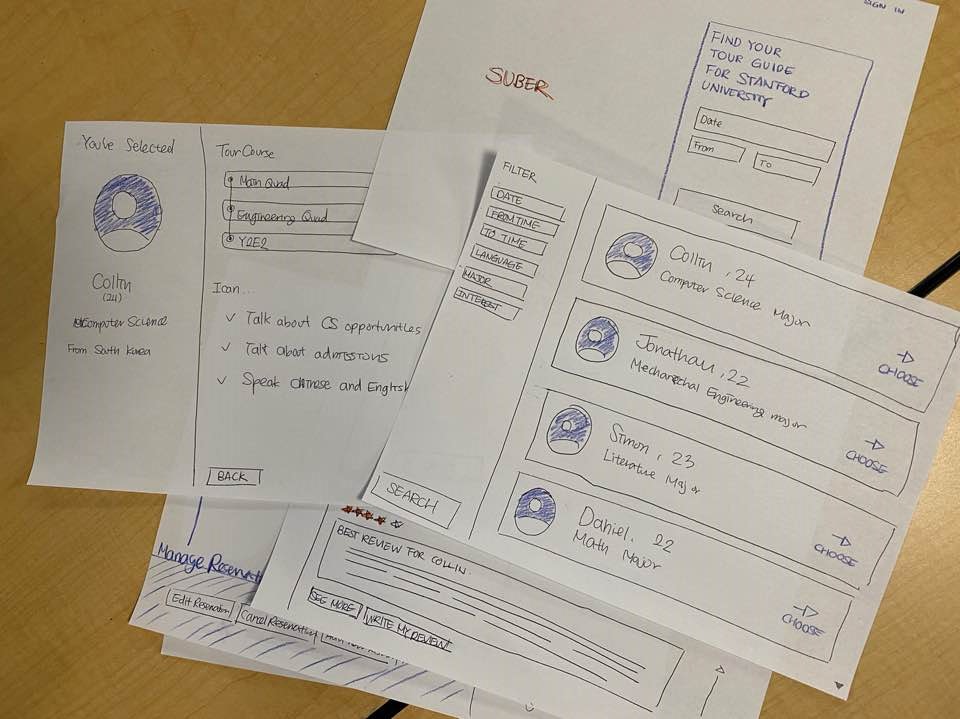 SIGN IN
SUBER
FIND YOUR
TOUR GUIDE
FOR STANFORD
UNIVERSITY
Date
From
To
Search
You've Selected
Collin
(24)
Computer Science
From South Korea
Tour Course
Main Quad
Engineering Quad
Y2E2
I can...
✓ Talk about CS opportunities
✓ Talk about admissions
✓ Speak Chinese and English
BACK
FILTER
DATE
FROM TIME
TO TIME
LANGUAGE
MAJOR
INTEREST
SEARCH
Collin, 24
Computer Science Major
CHOOSE
Jonathan, 22
Mechanical Engineering major
CHOOSE
Simon, 23
Literature Major
CHOOSE
Daniel, 22
Math Major
CHOOSE
BEST REVIEW FOR COLLIN.
SEE MORE
WRITE MY REVIEW
Manage
Edit Reservation
Cancel Reservation